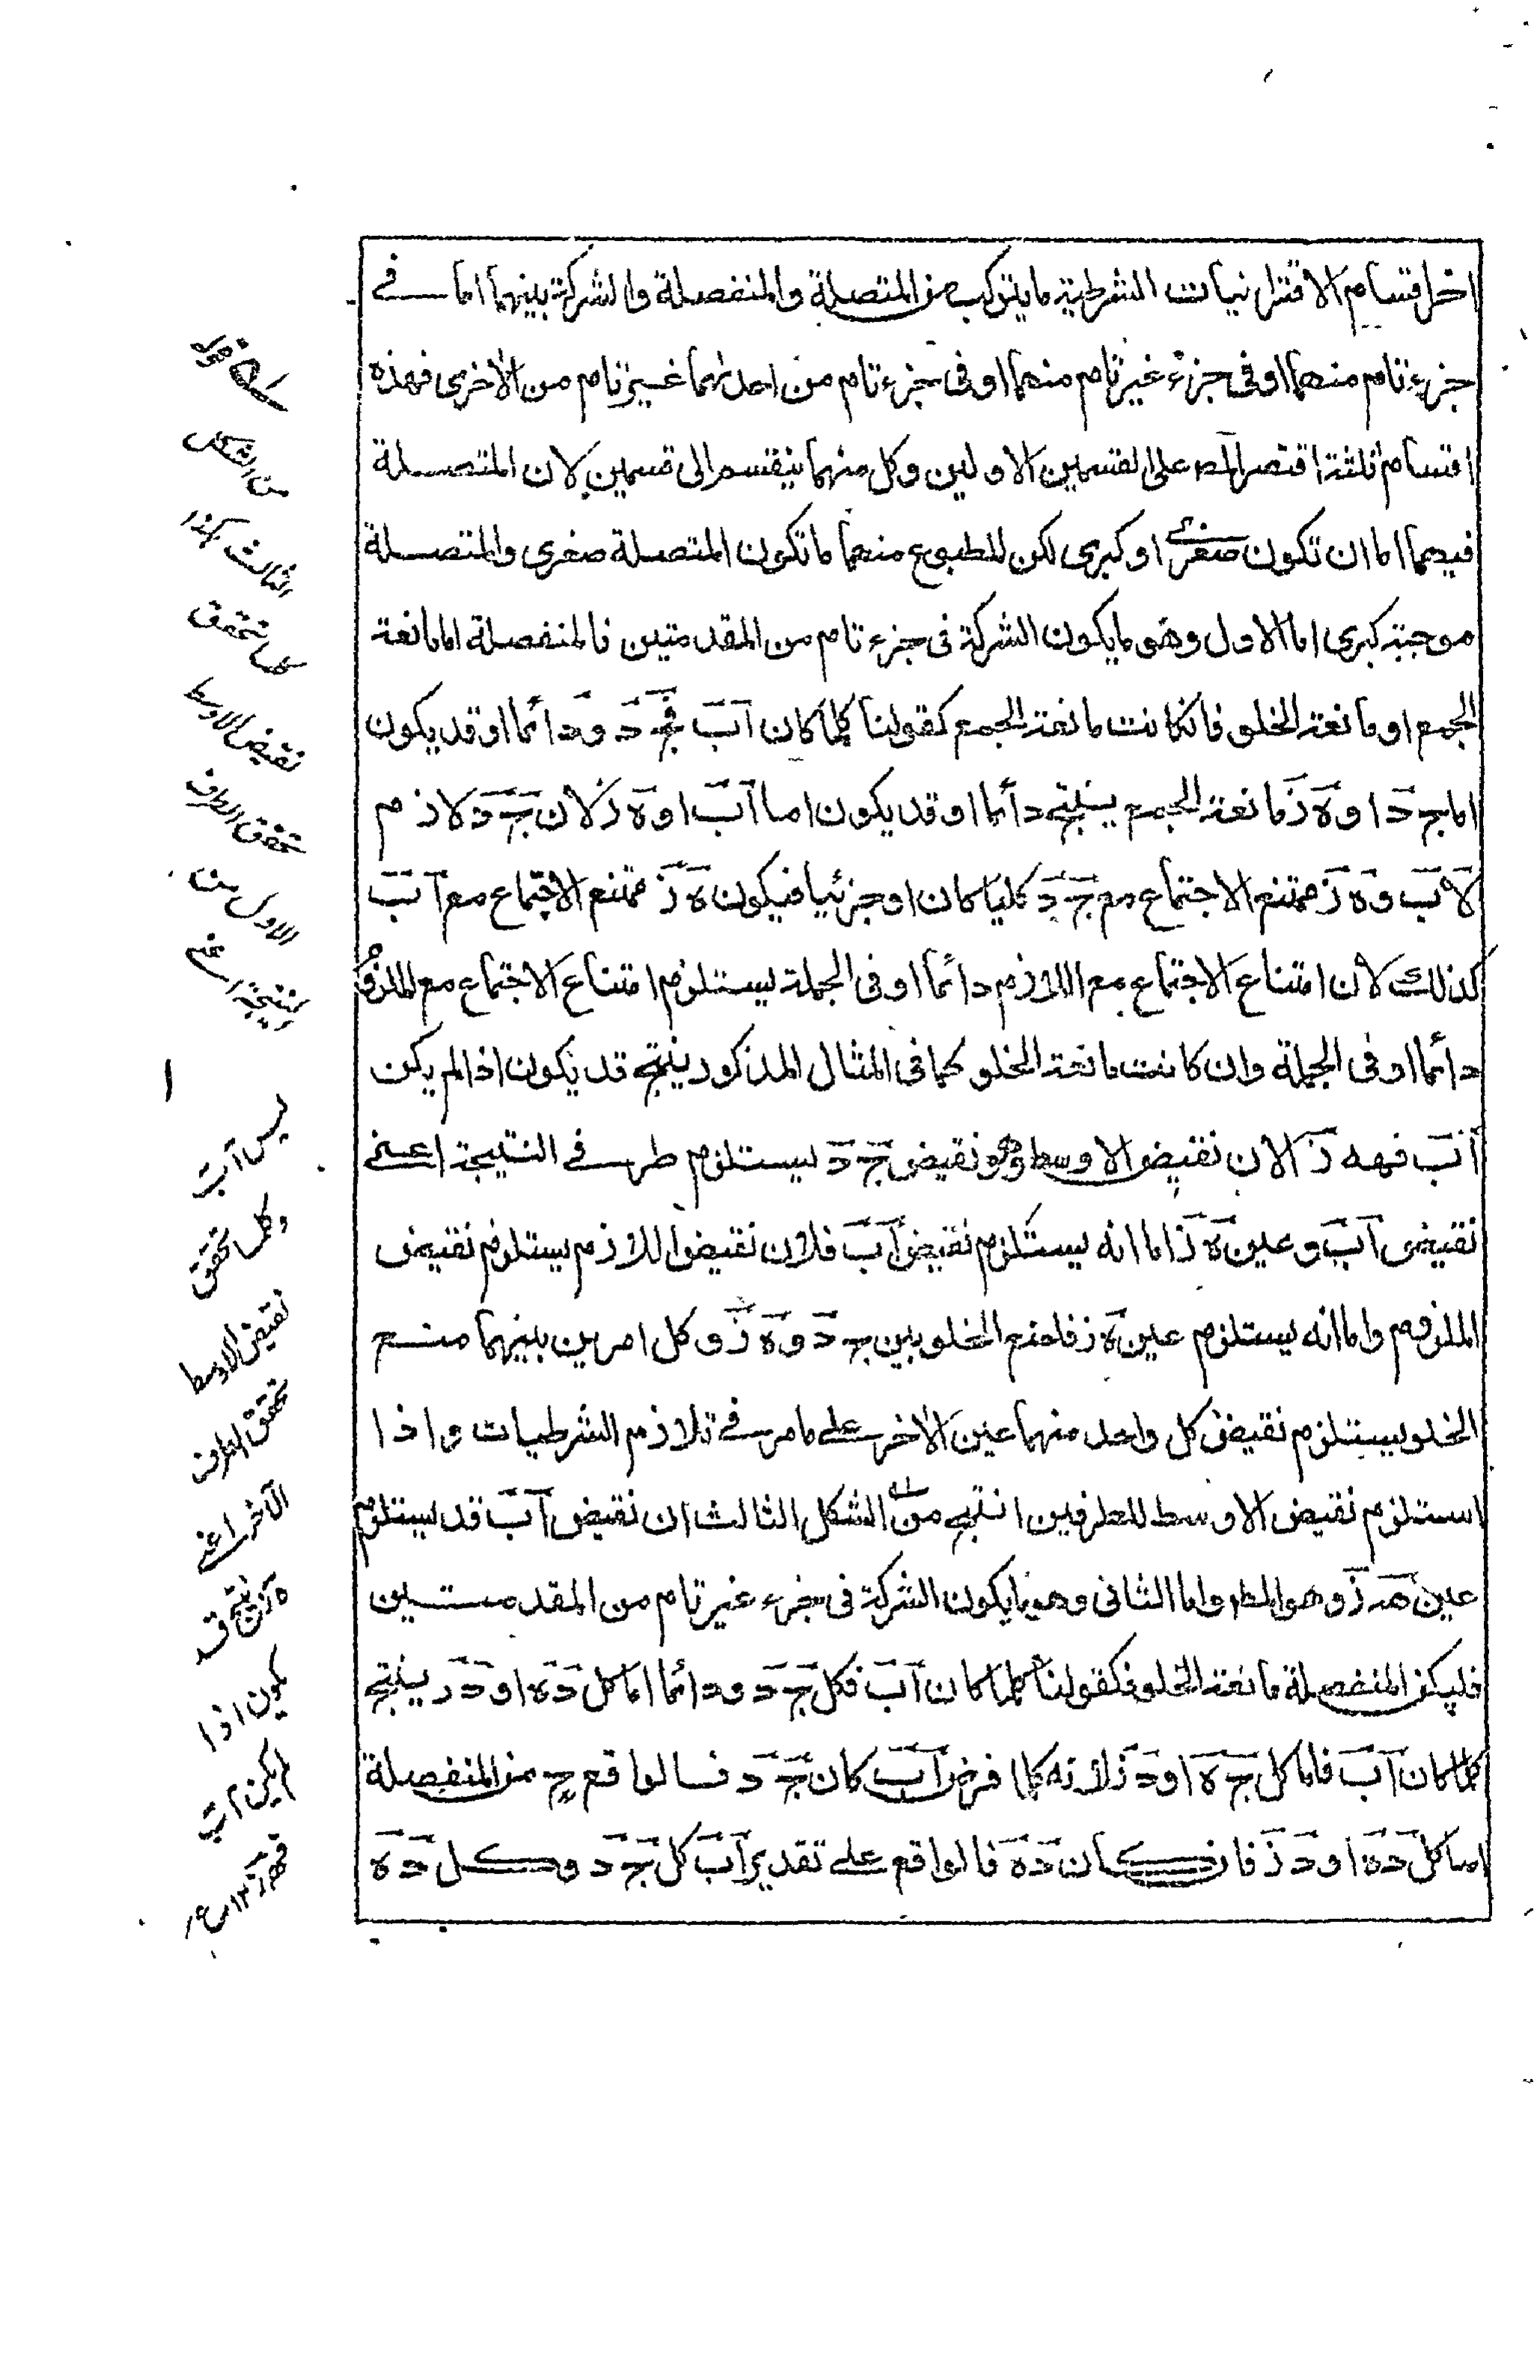 اخر اقسام الاقترانيات الشرطية ما يتركب من المتصلة والمنفصلة والشركة بينهما اما فے
جزء تام منهما او فی جزء غير تام منهما او فی جزء تام من احدٰهما غير تام من الاخری فهذه
اقسام ثلثة اقتصر المص علی القسمين الاولين وكل منهما ينقسم الی قسمين لان المتصلة
فيهما اما ان تكون صغرے او كبری لكن المطبوع منهما ما تكون المتصلة صغری والمتصلة
موجبة كبری اما الاول وهو ما يكون الشركة فی جزء تام من المقدمتين فالمنفصلة اما مانعة
الجمع او مانعة الخلو فانكانت مانعة الجمع كقولنا كلما كان آبَ فجَ دَ ودَائما او قد يكون
اما جَ دَ او هَ زَ مانعة الجمع ينتج دائما او قد يكون اما آبَ او هَ زَ لان جَ دَ لازم
لآبَ وهَ زَ ممتنع الاجتماع مع جَ دَ كليا كان او جزئيا فيكون هَ زَ ممتنع الاجتماع مع آبَ
كذلك لان امتناع الاجتماع مع اللازم دائما او فی الجملة يستلزم امتناع الاجتماع مع الملزوم
دائما او فی الجملة وان كانت مانعة الخلو كما فی المثال المذكور ينتج قد يكون اذا لم يكن
آبَ فهـ زَ لان نقيض الاوسط وهو نقيض جَ دَ يستلزم طرفے النتيجة اعنے
نقيض آبَ وعين هَ زَ اما انه يستلزم نقيض آبَ فلان نقيض اللازم يستلزم نقيض
الملزوم واما انه يستلزم عين هَ زَ فلمنع الخلو بين جَ دَ وهَ زَ وكل امرين بينهما منع
الخلو يستلزم نقيض كل واحد منهما عين الاٰخر علے ما مر فے تلازم الشرطيات واذا
استلزم نقيض الاوسط للطرفين انتج من الشكل الثالث ان نقيض آبَ قد يستلزم
عين هَـ زَ وهو المط واما الثانی وهو ما يكون الشركة فی جزء غير تام من المقدمتين
فليكن المنفصلة مانعة الخلو فكقولنا كلما كان آبَ فكل جَ دَ ودائما اما كل دَ هَ او دَ زَ ينتج
كلما كان آبَ فاما كل جَ هَ او دَ زَ لانه كلما فرض آبَ كان جَ دَ فالواقع ح من المنفصلة
اما كل دَ هَ او دَ زَ فان كان دَ هَ فالواقع علے تقدير آبَ كل جَ دَ وكل دَ هَ
قوله
من الشكل
الثالث هكذا
كلما تحقق
نقيض الاوسط
تحقق الطرف
الاول من
النتيجة اعنے
ليس آبَ
وكلما تحقق
نقيض الاوسط
تحقق الطرف
الآخر اعنے
هَ زَ ينتج قد
يكون اذا
لم يكن آبَ
فهـ زَ ١٢